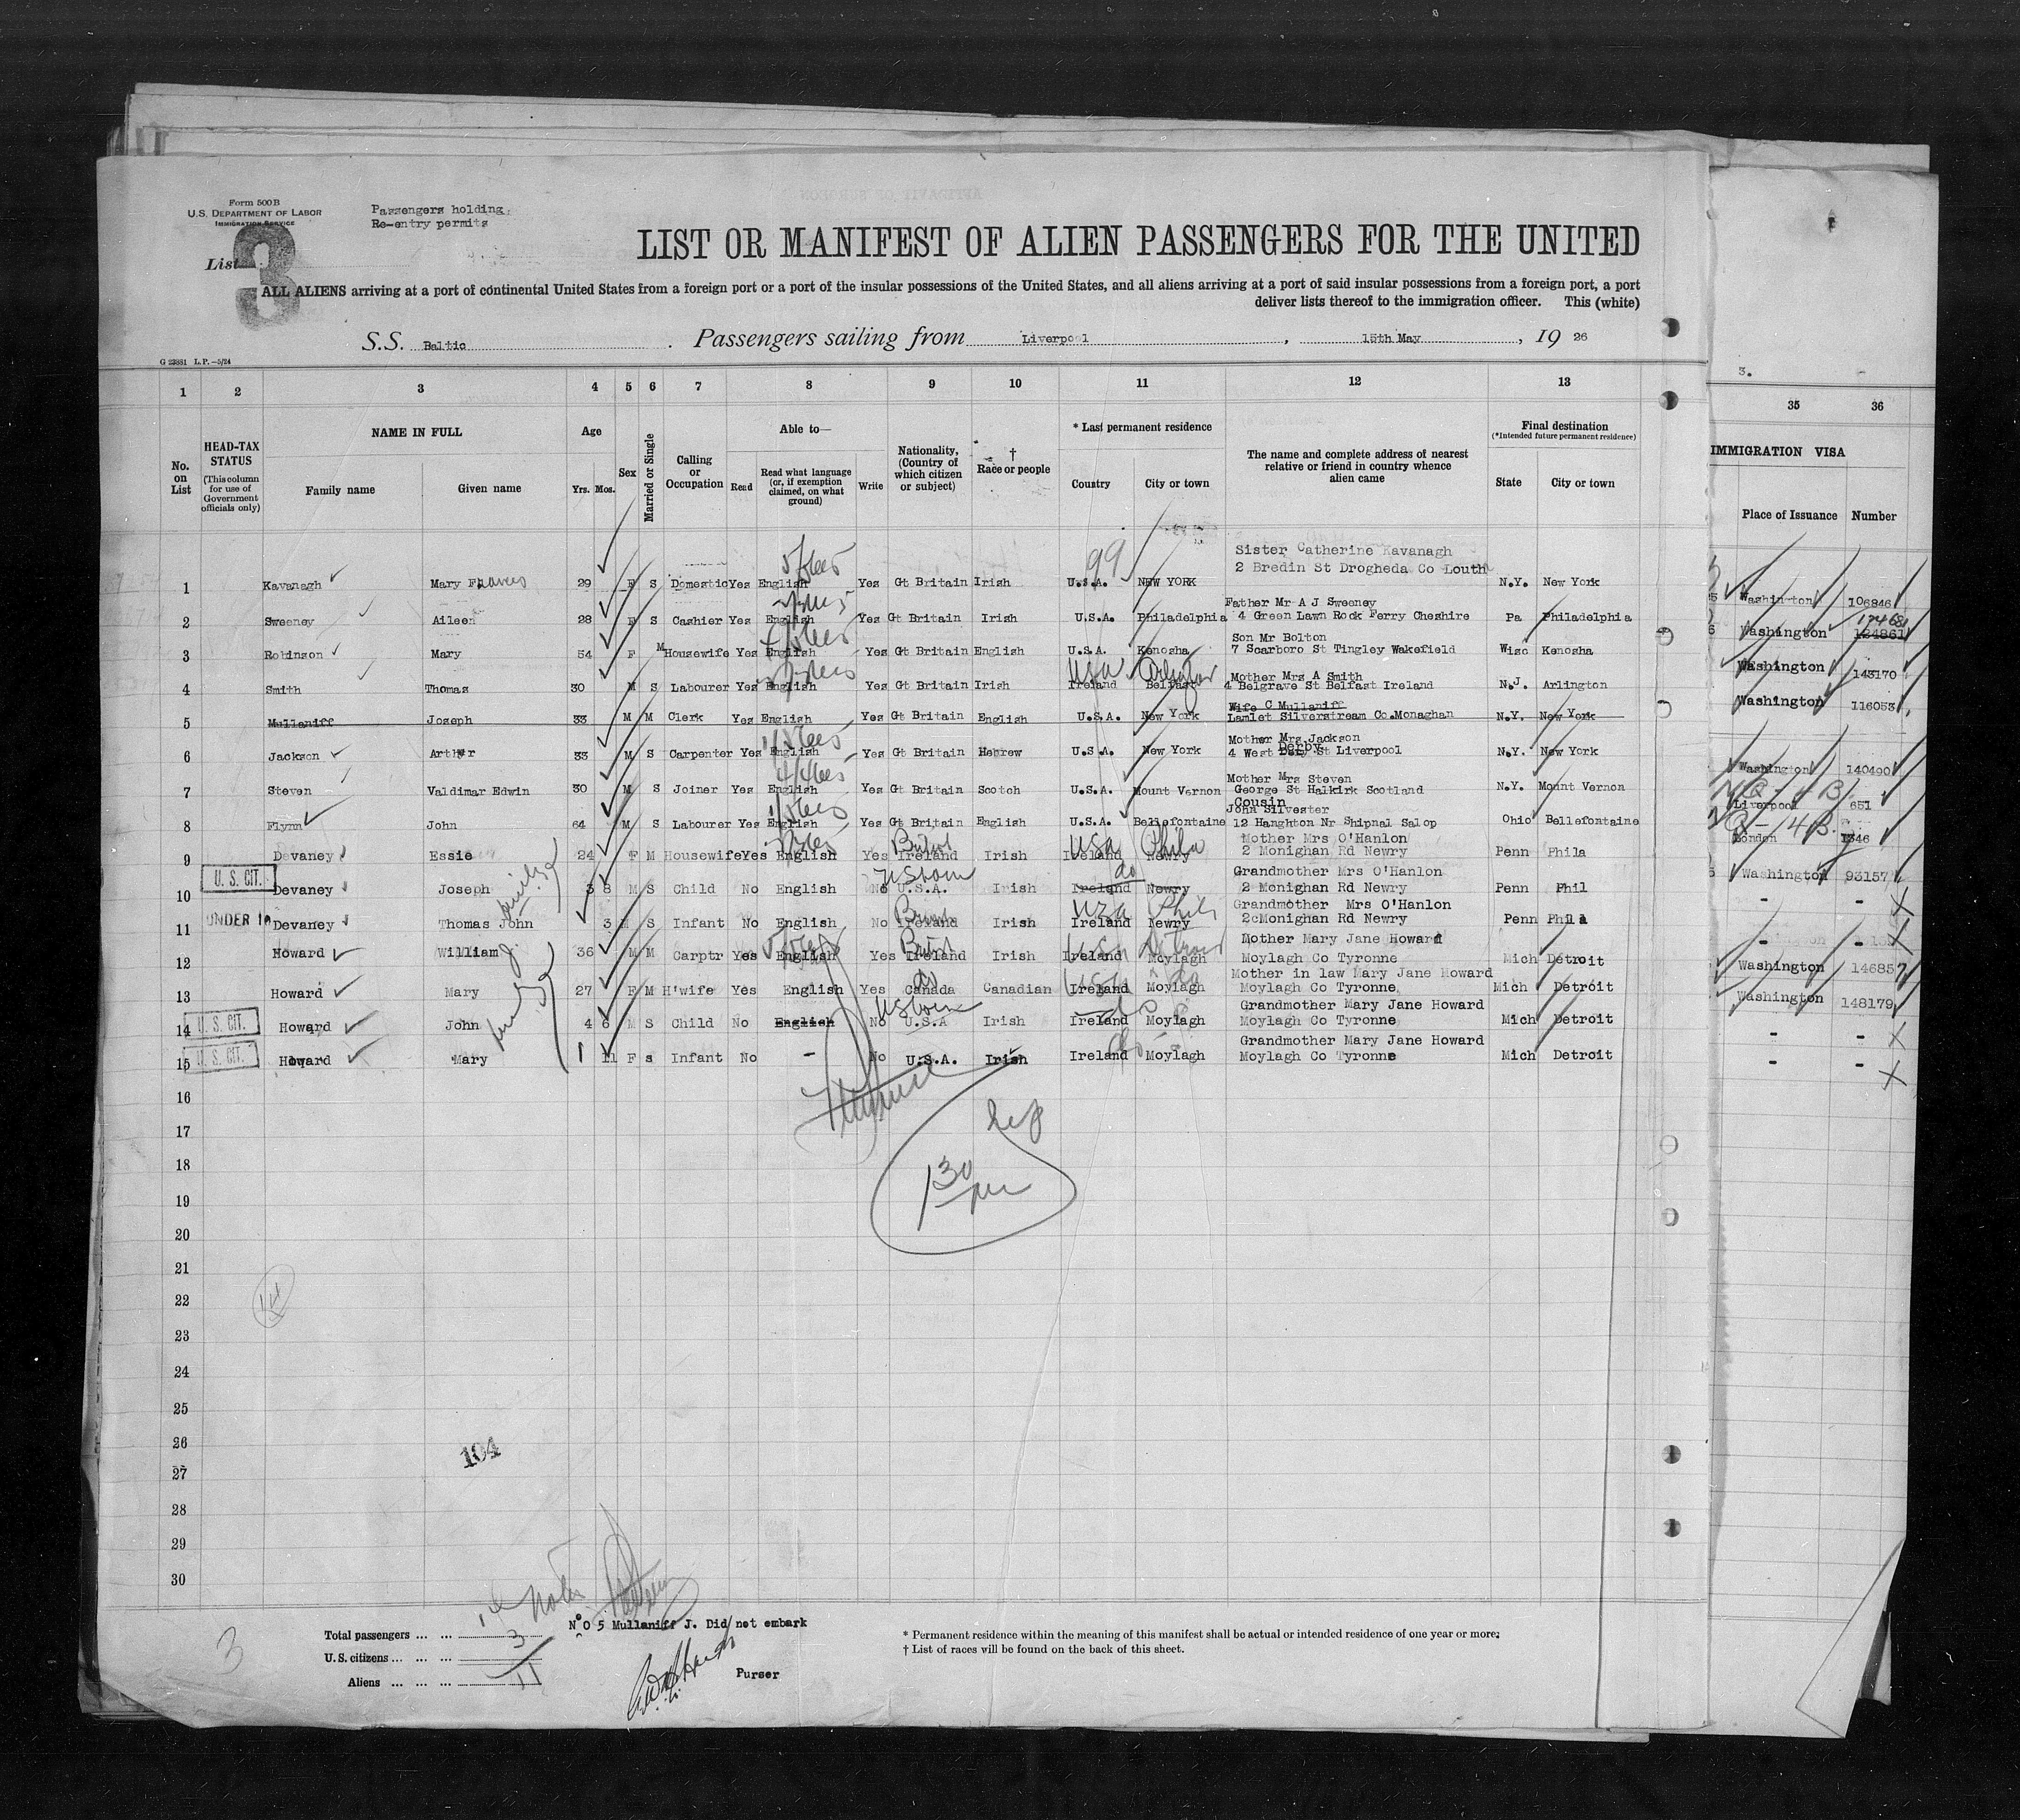 Form 500 B
U.S. DEPARTMENT OF LABOR
IMMIGRATION SERVICE
Passengers holding
Re-entry permits
List 3
LIST OR MANIFEST OF ALIEN PASSENGERS FOR THE UNITED
ALL ALIENS arriving at a port of continental United States from a foreign port or a port of the insular possessions of the United States, and all aliens arriving at a port of said insular possessions from a foreign port, a port
deliver lists thereof to the immigration officer. This (white)
S.S. Baltic. Passengers sailing from Liverpool, 15th May, 19 26
G 23881 L.P.—5/24
3.
1 2 3 4 5 6 7 8 9 10 11 12 13 35 36
No. on List
HEAD-TAX STATUS (This column for use of Government officials only)
NAME IN FULL
Family name Given name
Age
Yrs. Mos.
Sex
Married or Single
Calling or Occupation
Able to—
Read
Read what language (or, if exemption claimed, on what ground)
Write
Nationality, (Country of which citizen or subject)
† Race or people
* Last permanent residence
Country City or town
The name and complete address of nearest relative or friend in country whence alien came
Final destination
(*Intended future permanent residence)
State City or town
IMMIGRATION VISA
Place of Issuance Number
99
Sister Catherine Kavanagh
2 Bredin St Drogheda Co Louth
1 Kavanagh Mary Frances 29 F S Domestic Yes English Yes Gt Britain Irish U.S.A. NEW YORK N.Y. New York Washington 106846
Father Mr A J Sweeney
2 Sweeney Aileen 28 F S Cashier Yes English Yes Gt Britain Irish U.S.A. Philadelphia 4 Green Lawn Rock Ferry Cheshire Pa Philadelphia Washington 124861
Son Mr Bolton
3 Robinson Mary 54 F M Housewife Yes English Yes Gt Britain English U.S.A. Kenosha 7 Scarboro St Tingley Wakefield Wisc Kenosha Washington 143170
USA
Mother Mrs A Smith
4 Smith Thomas 30 M S Labourer Yes English Yes Gt Britain Irish Ireland Belfast 4 Belgrave St Belfast Ireland N.J. Arlington Washington 116053
Wife C Mullaniff
5 Mullaniff Joseph 33 M M Clerk Yes English Yes Gt Britain English U.S.A. New York Lamlet Silverstream Co.Monaghan N.Y. New York
Mother Mrs Jackson
6 Jackson Arthur 33 M S Carpenter Yes English Yes Gt Britain Hebrew U.S.A. New York 4 West Derby St Liverpool N.Y. New York Washington 140490
Mother Mrs Steven
7 Steven Valdimar Edwin 30 M S Joiner Yes English Yes Gt Britain Scotch U.S.A. Mount Vernon George St Halkirk Scotland N.Y. Mount Vernon Liverpool 651
Cousin
John Silvester
8 Flynn John 64 M S Labourer Yes English Yes Gt Britain English U.S.A. Bellefontaine 12 Hanghton Nr Shipnal Salop Ohio Bellefontaine London 1346
British USA Phila
Mother Mrs O'Hanlon
9 Devaney Essie 24 F M Housewife Yes English Yes Ireland Irish Ireland Newry 2 Monighan Rd Newry Penn Phila Washington 93157
US born do
Grandmother Mrs O'Hanlon
10 U. S. CIT. Devaney Joseph 3 8 M S Child No English No U.S.A. Irish Ireland Newry 2 Monighan Rd Newry Penn Phil - - X
USA Phila
Grandmother Mrs O'Hanlon
11 UNDER 16 Devaney Thomas John 3 M S Infant No English No Ireland Irish Ireland Newry 2cMonighan Rd Newry Penn Phila - - X
Mother Mary Jane Howard
12 Howard William J. 36 M M Carptr Yes English Yes Ireland Irish Ireland Moylagh Moylagh Co Tyronne Mich Detroit Washington 146857
do
Mother in law Mary Jane Howard
13 Howard Mary 27 F M H'wife Yes English Yes Canada Canadian Ireland Moylagh Moylagh Co Tyronne Mich Detroit Washington 148179
US born
Grandmother Mary Jane Howard
14 U. S. CIT. Howard John 4 6 M S Child No English No U.S.A Irish Ireland Moylagh Moylagh Co Tyronne Mich Detroit - - X
Grandmother Mary Jane Howard
15 U. S. CIT. Howard Mary 1 11 F s Infant No - No U.S.A. Irish Ireland Moylagh Moylagh Co Tyronne Mich Detroit - - X
16
17
18
1 30 pm
19
20
21
22
14
23
24
25
26
104
27
28
29
30
No 5 Mullaniff J. Did not embark
Purser
Total passengers ... ... 14
U. S. citizens ... ... ... 3
Aliens ... ... ... 11
3
* Permanent residence within the meaning of this manifest shall be actual or intended residence of one year or more.
† List of races will be found on the back of this sheet.